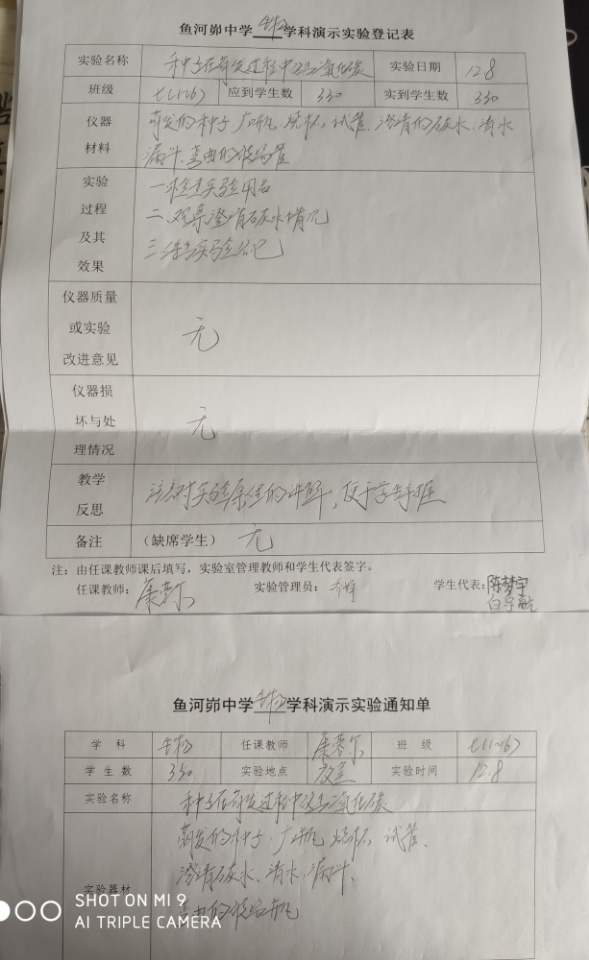 鱼河峁中学生物学科演示实验登记表
实验名称 种子在萌发过程中 二氧化碳 实验日期 12.8
班级 七(1~6) 应到学生数 330 实到学生数 330
仪器材料 萌发的种子 广口瓶、烧杯、试管、澄清的石灰水、清水
漏斗、弯曲的玻璃管
实验过程及其效果 一、检查实验用品
二、观察澄清石灰水情况
三、 实验笔记
仪器质量或实验改进意见 无
仪器损坏与处理情况 无
教学反思 注意对实验 的讲解,便于学生掌握
备注 (缺席学生) 无
注:由任课教师课后填写,实验室管理教师和学生代表签字。
任课教师: 实验管理员: 学生代表:陈梦宇
鱼河峁中学生物学科演示实验通知单
学科 生物 任课教师 班级 七(1~6)
学生数 330 实验地点 教室 实验时间 12.8
实验名称 种子在萌发过程中 二氧化碳
实验器材 萌发的种子、广口瓶 烧杯、试管、
澄清石灰水、清水、漏斗、
弯曲的玻璃
SHOT ON MI 9
AI TRIPLE CAMERA